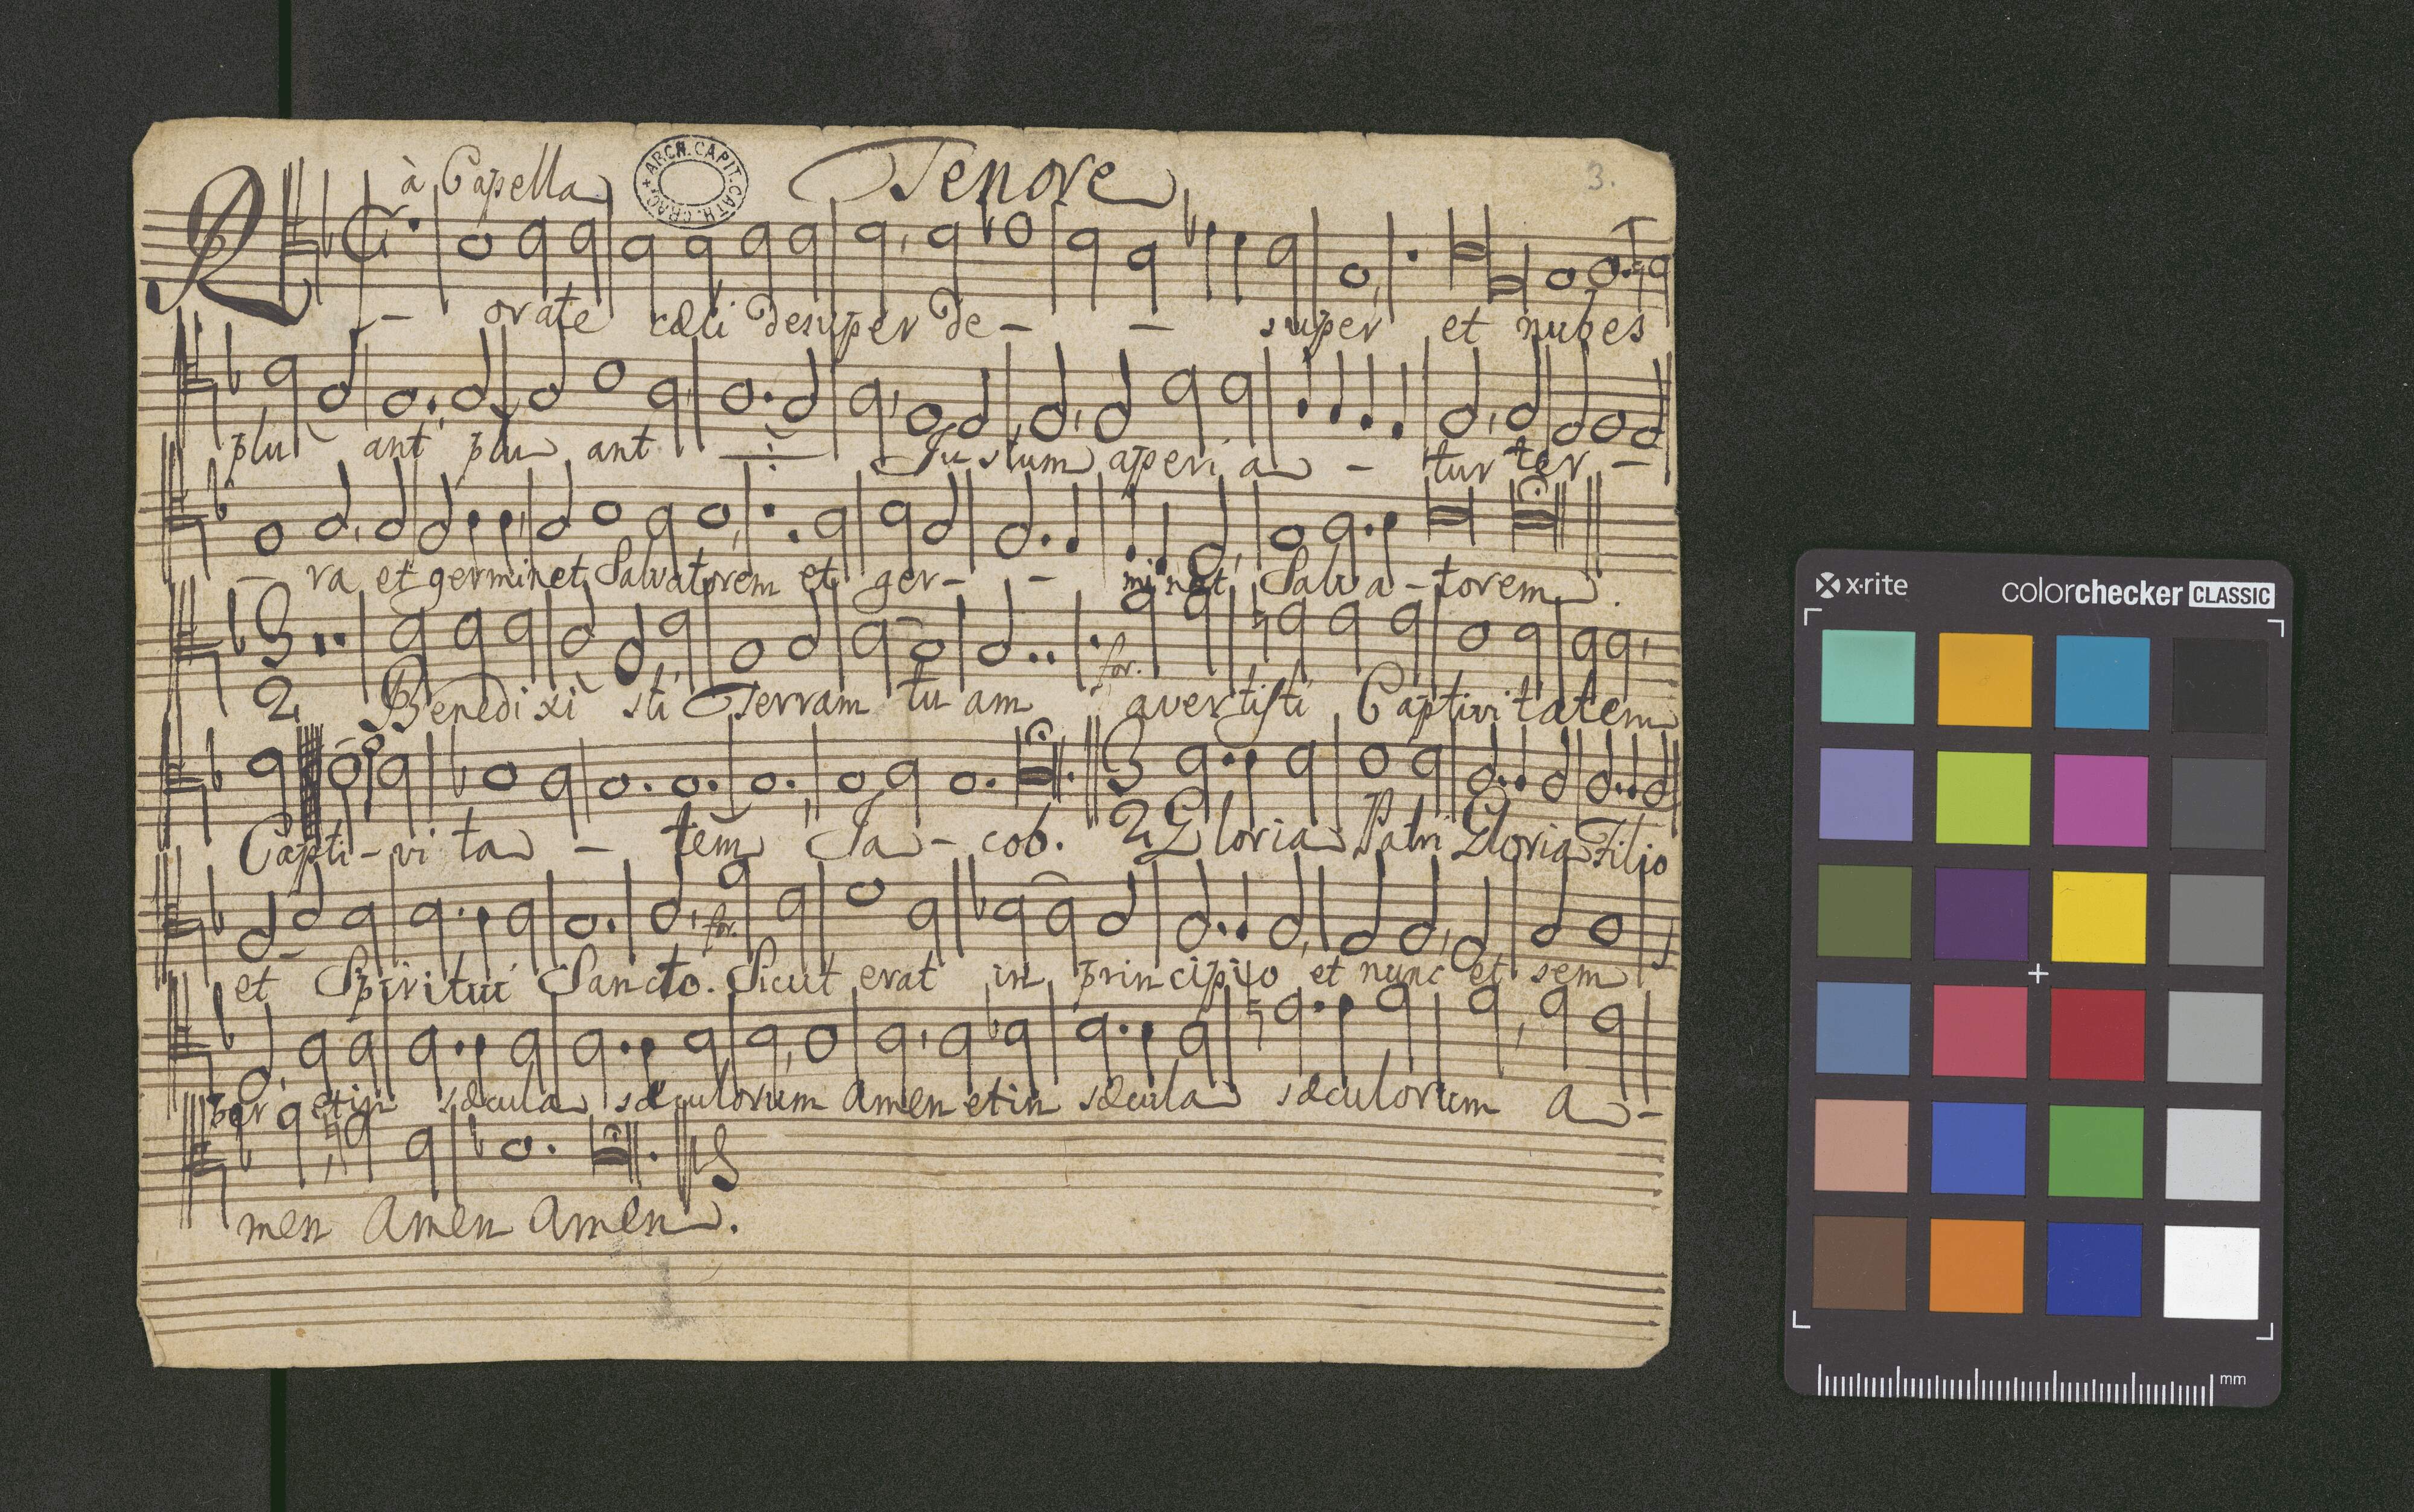 à Capella Tenore 3.
ARCH. CAPIT. CATH. CRAC.
R - orate cæli desuper de - - super et nubes
plu ant plu ant Justum aperi a - tur ter -
- ra et germinet Salvatorem et ger - - minet Salva - torem.
3
2 Benedixi sti Terram tu am for. avertisti Captivitatem
Capti - vi ta - tem Ja - cob. 3
2 Gloria Patri Gloria Filio
et Spiritui Sancto. for. Sicut erat in principio et nunc et sem
per et in sæcula sæculorum Amen et in sæcula sæculorum A -
men Amen Amen.
x-rite colorchecker CLASSIC
mm